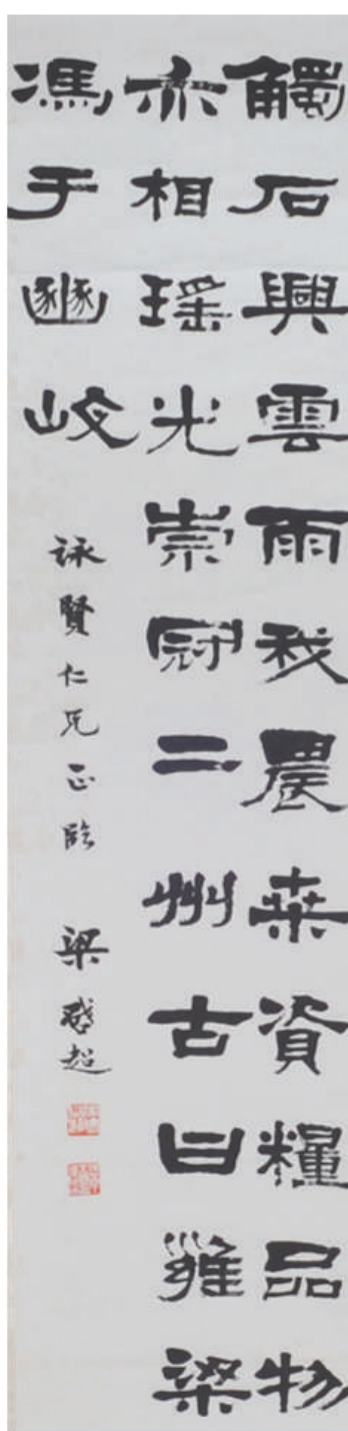 觸石興雲雨我農桑資糧品物
亦相瑤光崇冠二州古曰雍梁
馮于豳岐
詠賢仁兄正臨 梁啟超